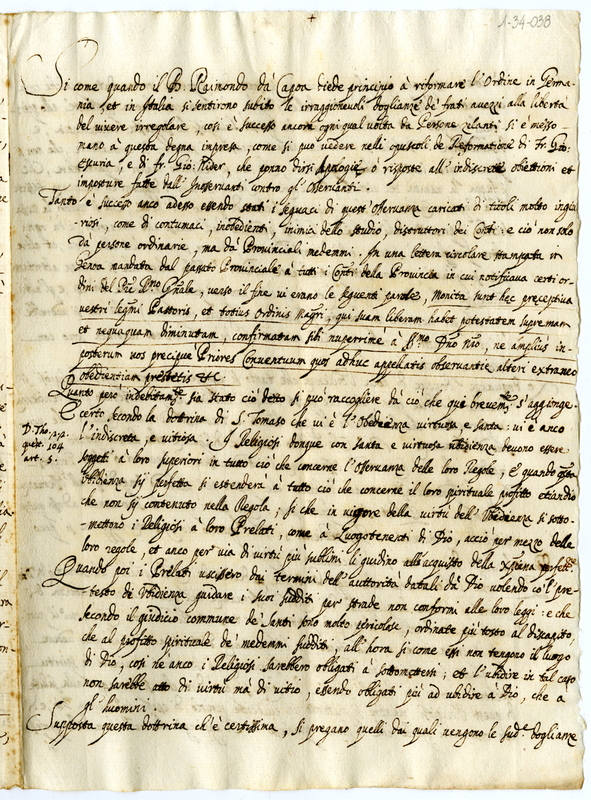 +
1-34-038
Si come quando il B. Raimondo da Capoa diede principio à riformare l'Ordine in Germa-
nia et in Italia si sentirono subito le irraggionevoli doglianze de frati avezzi alla libertà
del vivere irregolare, così è successo ancora ogni qual volta da Persone zelanti si è messo
mano à questa degna impresa, come si può vedere nelli opuscoli de Reformatione di Fr. Gio:
e di fr. Gio: Nider, che ponno dirsi Apologie, o risposte all' indiscrete obiettioni et
imposture fatte dall' contro gl' Osservanti.
Tanto è successo anco adesso essendo stati i seguaci di quest' osservanza caricati di titoli molto ingiu
riosi, come di contumaci, inobedienti, inimici dello studio, distruttori dei Conti: e ciò non solo
da persone ordinarie, ma da Provinciali medemmi. In una lettera circolare stampata in
Genoa mandata dal passato Provinciale à tutti i Conti della Provincia in cui notificava certi or-
dini del Pre Rmo Gnale, verso il fine vi erano le seguenti parole, Monita sunt hec preceptiva
vestri legmi Pastoris, et totius Ordinis Magri, qui suam liberam habet potestatem supremam
et nequaquam diminutam, confirmatam sibi nuperrime à Smo Dno Nro, ne amplius in-
posterum vos precipue Priores Conventuum quos adhuc appellatis observantie alteri extraneo
obedientiam prestetis &c.
Quanto pero indebitamte sia stato ciò detto si può raccogliere da ciò che qui brevemte s'aggionge.
Certo secondo la dottrina di S. Tomaso che vi è l'Obedienza virtuosa, e santa: vi è anco
D. Tho. 2.2.
quest. 104
art. 5.
l'indiscreta, e vitiosa. I Religiosi donque con santa e virtuosa ubidienza devono essere
soggetti à loro superiori in tutto ciò che concerne l'Osservanza delle loro Regole, & quando
Ubidienza sij perfetta si estenderà à tutto ciò che concerne il loro spirituale profitto etiandio
che non sij contenuto nella Regola; si che in vigore della virtù dell' Ubedienza si sotto-
-mettono i Religiosi à loro Prelati, come à Luogotenenti di Dio, acciò per mezzo delle
loro regole, et anco per via di virtù più sublimi li guidino all' acquisto della Xpiana perfette
Quando poi i Prelati uscissero dai termini dell' auttorità datali da Dio volendo co'l pre-
testo di Ubidienza guidare i suoi sudditi per strade non conformi alle loro leggi: e che
secondo il giudicio commune de' Santi sono molto pericolose, ordinate più tosto al discapito,
che al profitto spirituale de' medemmi sudditi; all' hora si come essi non tengono il luogo
di Dio, così ne anco i Religiosi sarebbero obligati à sottomettersi; et l'ubidire in tal caso
non sarebbe atto di virtù mà di vitio, essendo obligati più ad ubidire à Dio, che a
gl' huomini.
Supposta questa dottrina ch'è certissima, si pregano quelli dai quali vengono le sude doglianze